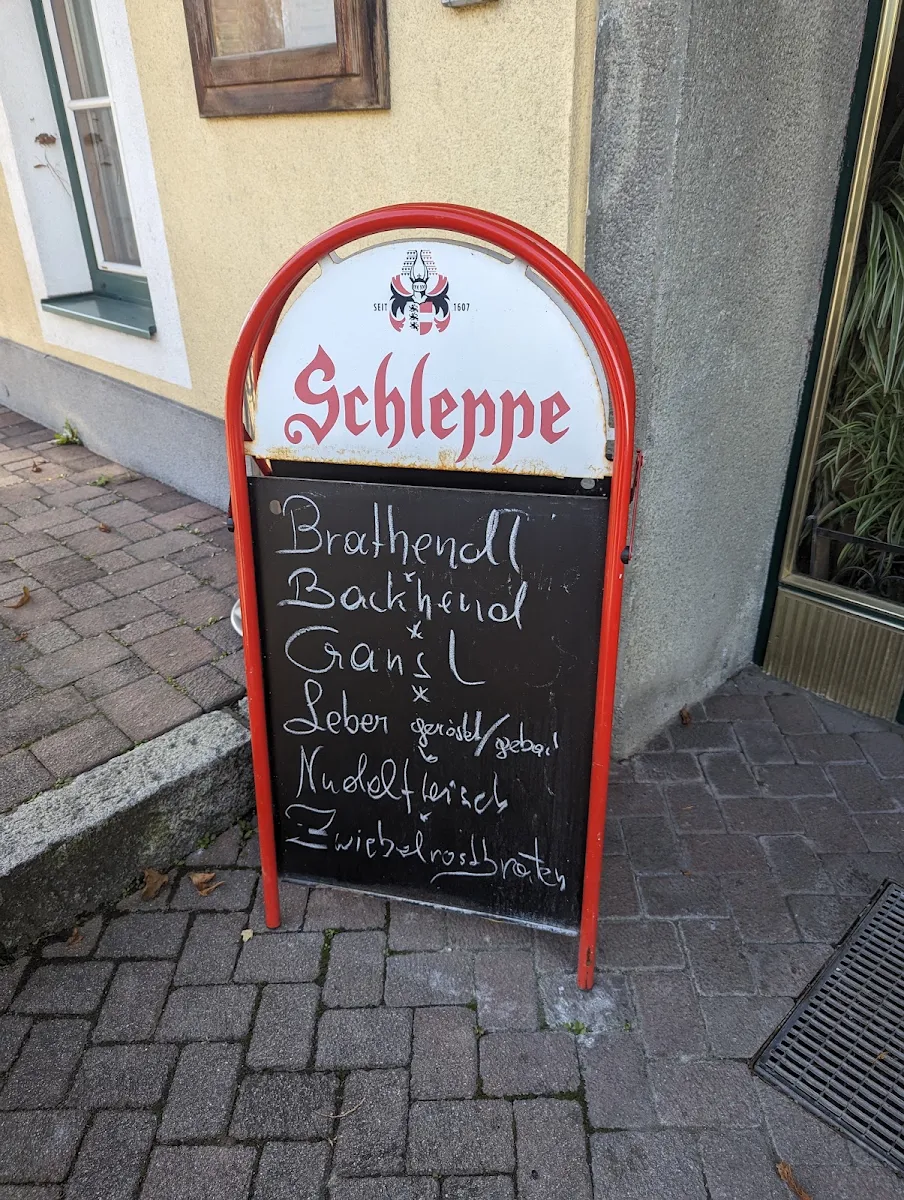 SEIT 1607
Schleppe
Brathendl
Backhend
Gansl
Leber geröstet/gebac
Nudelfleisch
Zwiebelrostbraten